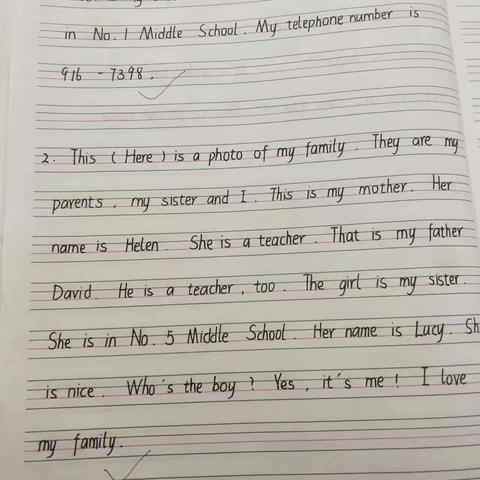 in No. 1 Middle School. My telephone number is
916 - 7398.
2. This (Here) is a photo of my family. They are my
parents, my sister and I. This is my mother. Her
name is Helen. She is a teacher. That is my father
David. He is a teacher, too. The girl is my sister.
She is in No. 5 Middle School. Her name is Lucy. Sh
is nice. Who's the boy? Yes, it's me! I love
my family.